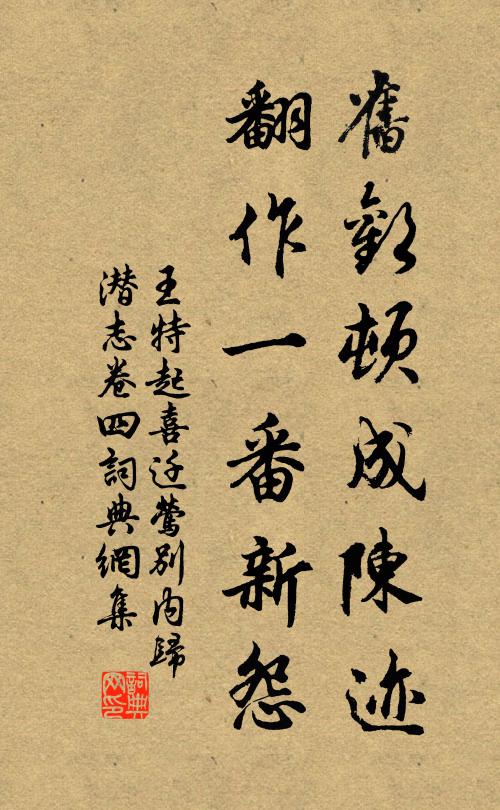 舊歡頓成陳迹
翻作一番新怨
王特起喜迁鶯别内歸
潜志卷四詞典網集
詞典網印